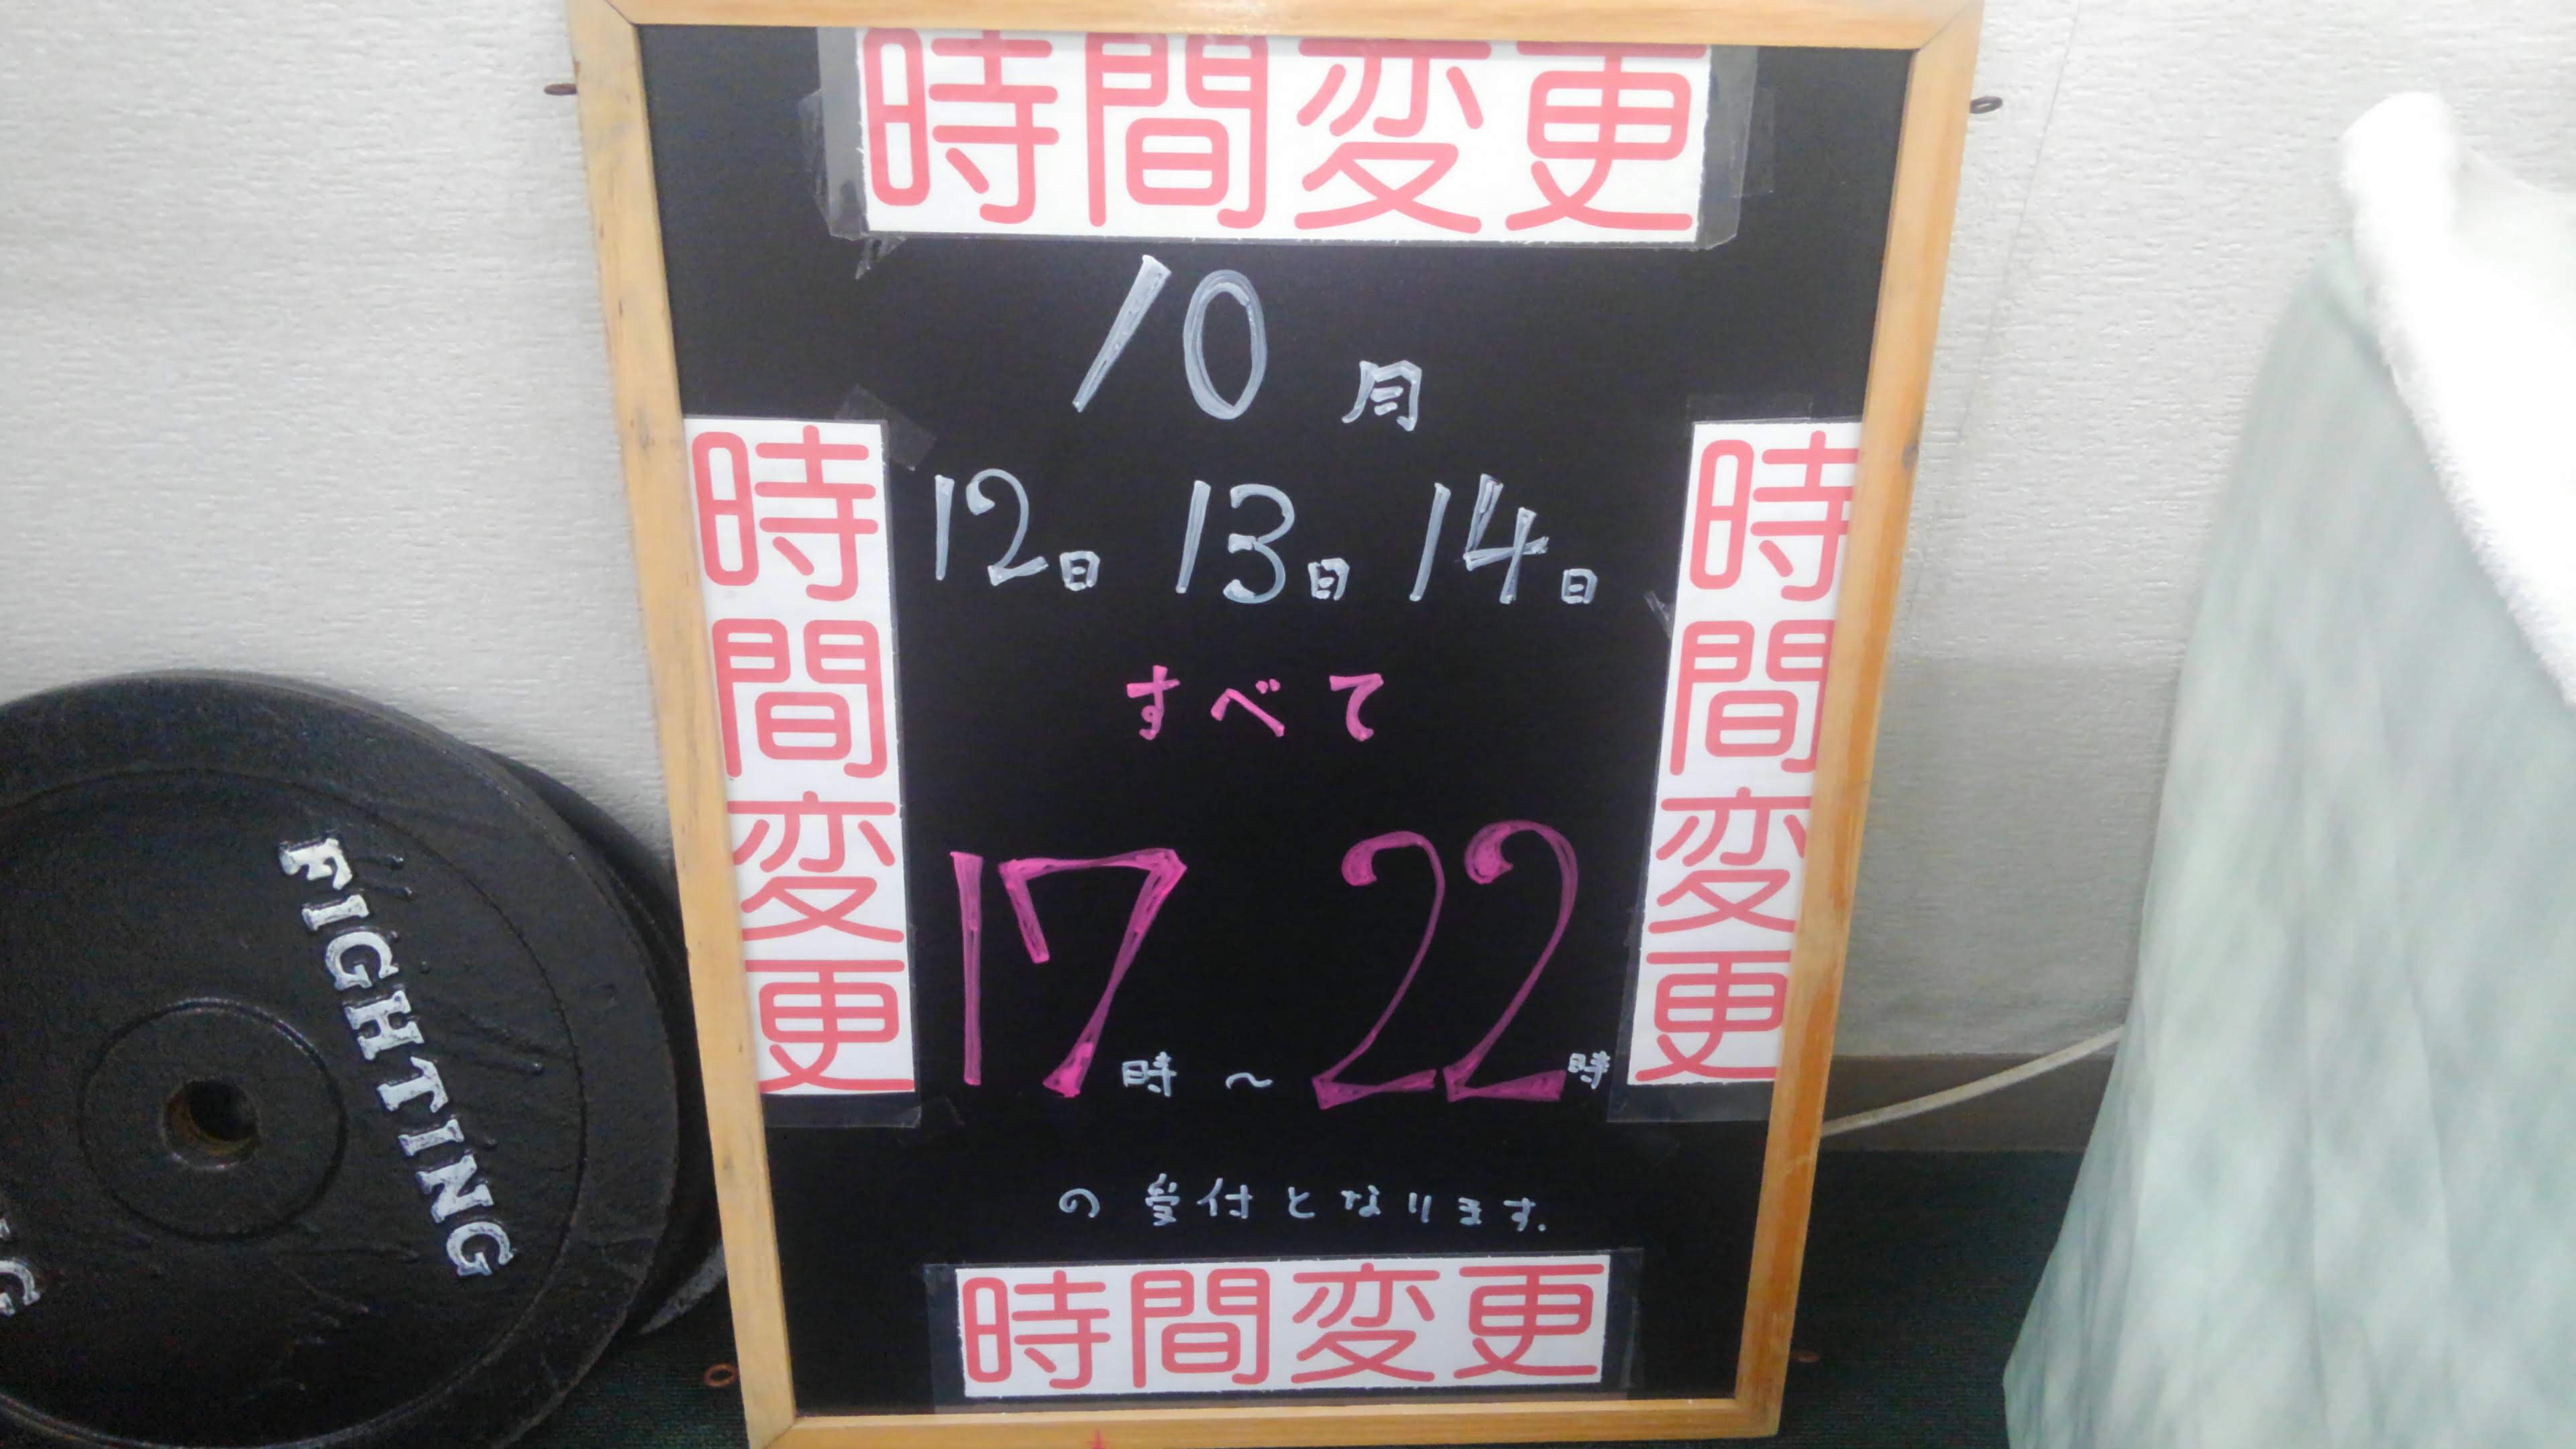 時間変更
10月
12日 13日 14日
すべて
17時〜22時
の受付となります.
時間変更
時間変更
時間変更
FIGHTING